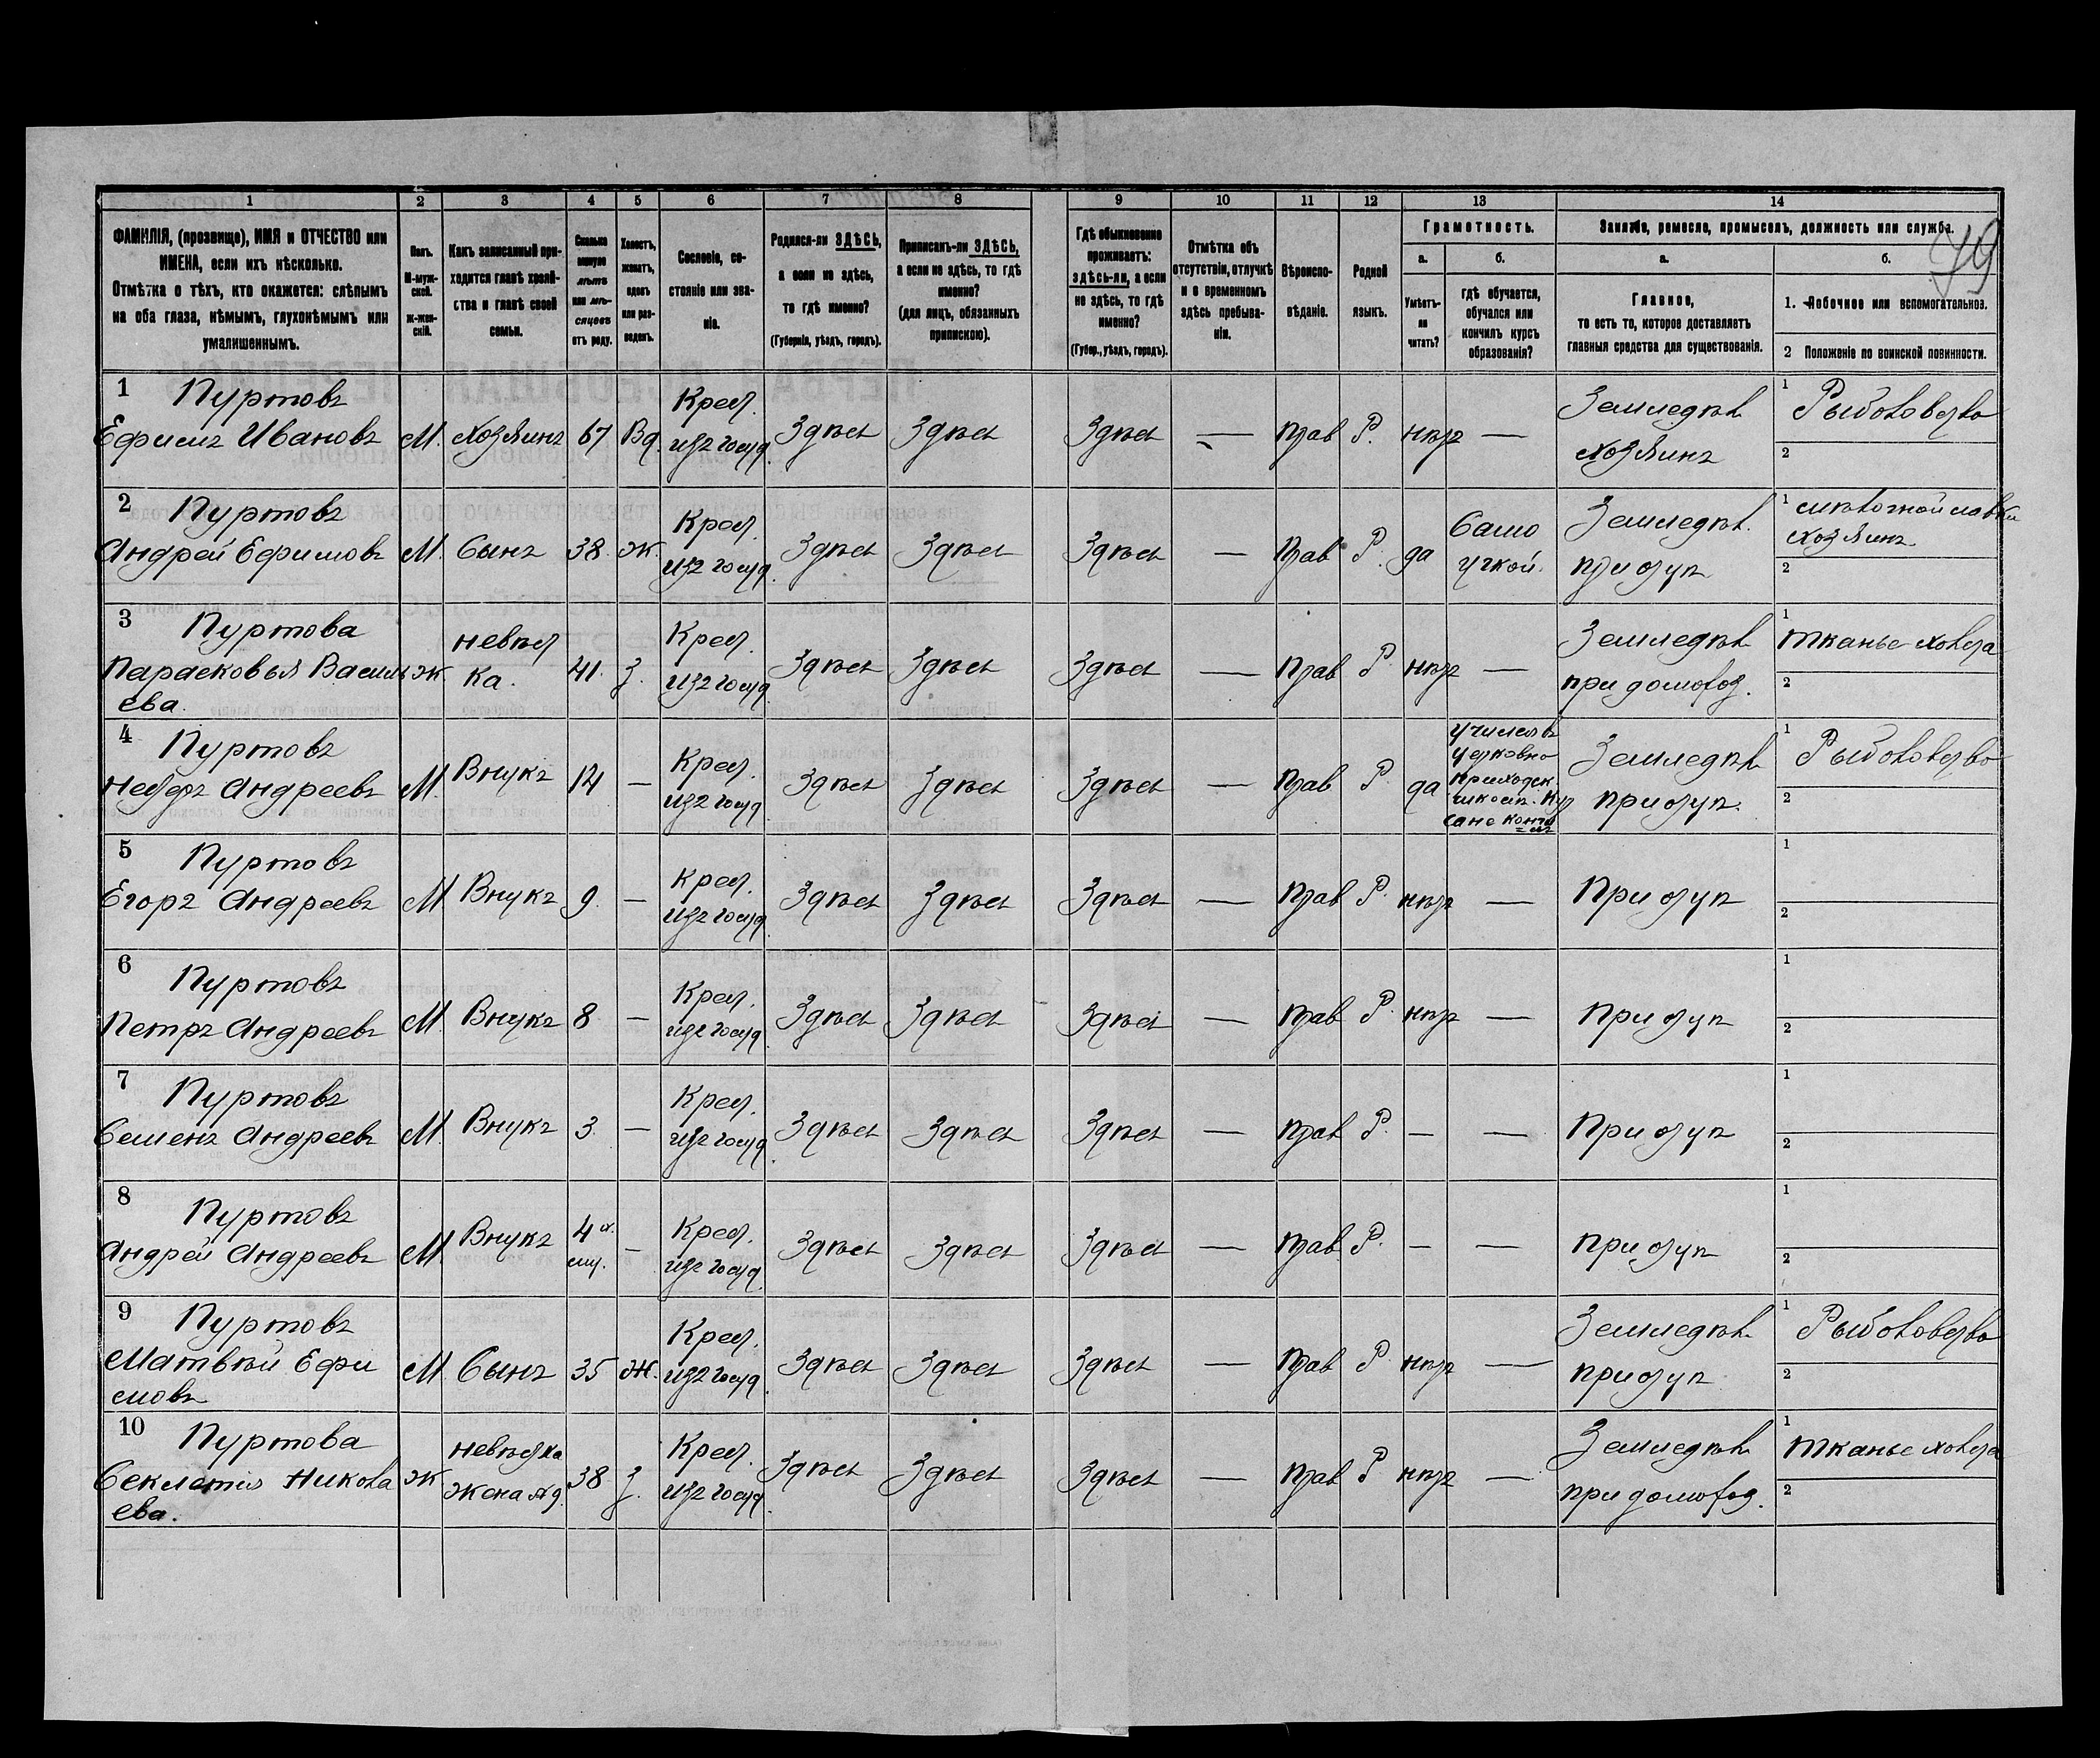 79
1 2 3 4 5 6 7 8 9 10 11 12 13 14
ФАМИЛІЯ, (прозвище), ИМЯ и ОТЧЕСТВО или
ИМЕНА, если ихъ нѣсколько.
Отмѣтка о тѣхъ, кто окажется: слѣпымъ
на оба глаза, нѣмымъ, глухонѣмымъ или
умалишеннымъ.
Полъ.
М-муж-
ской.
Ж-жен-
скій.
Какъ записанный при-
ходится главѣ хозяй-
ства и главѣ своей
семьи.
Сколько
минуло
лѣтъ
или мѣ-
сяцевъ
отъ роду.
Холостъ,
женатъ,
вдовъ
или раз-
веденъ.
Сословіе, со-
стояніе или зва-
ніе.
Родился-ли ЗДѢСЬ,
а если не здѣсь,
то гдѣ именно?
(Губернія, уѣздъ, городъ).
Приписанъ-ли ЗДѢСЬ,
а если не здѣсь, то гдѣ
именно?
(для лицъ, обязанныхъ
припискою).
Гдѣ обыкновенно
проживаетъ:
здѣсь-ли, а если
не здѣсь, то гдѣ
именно?
(Губер., уѣздъ, городъ).
Отмѣтка объ
отсутствіи, отлучкѣ
и о временномъ
здѣсь пребыва-
ніи.
Вѣроиспо-
вѣданіе.
Родной
языкъ.
Грамотность.
а.
Умѣетъ-
ли
читать?
б.
гдѣ обучается,
обучался или
кончилъ курсъ
образованія?
Занятіе, ремесло, промыселъ, должность или служба.
а.
Главное,
то есть то, которое доставляетъ
главныя средства для существованія.
б.
1. Побочное или вспомогательное.
2 Положеніе по воинской повинности.
1 Пуртовъ
Ефимъ Ивановъ М. Хозяинъ 67 Вд. Крест. изъ госуд. Здѣсь Здѣсь Здѣсь — Прав Р. нѣтъ — Земледѣл. хозяинъ 1 Рыболовство
2
2 Пуртовъ
Андрей Ефимовъ М. Сынъ 38. Ж. Крест. изъ госуд. Здѣсь Здѣсь Здѣсь — Прав Р. да Само учкой. Земледѣл. при отцѣ 1 хозяинъ
2
3 Пуртова
Парасковья Василь
ева. Ж невѣст ка. 41. З. Крест. изъ госуд. Здѣсь Здѣсь Здѣсь — Прав Р. нѣтъ — Земледѣл. при домохоз. 1 Тканье холста
2
4 Пуртовъ
Андреевъ М. Внукъ 14 — Крест. изъ госуд. Здѣсь Здѣсь Здѣсь — Прав Р. да Учился въ церковно приходск. Земледѣл. при отцѣ 1 Рыболовство
2
5 Пуртовъ
Егоръ Андреевъ М. Внукъ 9. — Крест. изъ госуд. Здѣсь Здѣсь Здѣсь — Прав Р. нѣтъ — При отцѣ 1
2
6 Пуртовъ
Петръ Андреевъ М. Внукъ 8 — Крест. изъ госуд. Здѣсь Здѣсь Здѣсь — Прав Р. нѣтъ — При отцѣ 1
2
7 Пуртовъ
Семенъ Андреевъ М. Внукъ 3. — Крест. изъ госуд. Здѣсь Здѣсь Здѣсь — Прав Р. — — При отцѣ 1
2
8 Пуртовъ
Андрей Андреевъ М. Внукъ 4 — Крест. изъ госуд. Здѣсь Здѣсь Здѣсь — Прав Р. — — При отцѣ 1
2
9 Пуртовъ
Матвѣй Ефи
мовъ М Сынъ 35 Ж. Крест. изъ госуд. Здѣсь Здѣсь Здѣсь — Прав Р нѣтъ — Земледѣл. при отцѣ 1 Рыболовство
2
10 Пуртова
Секлетия Никола
ева. Ж невѣстка Жена 38 З. Крест. изъ госуд. Здѣсь Здѣсь Здѣсь — Прав Р нѣтъ — Земледѣл. при домохоз. 1 Тканье холста
2